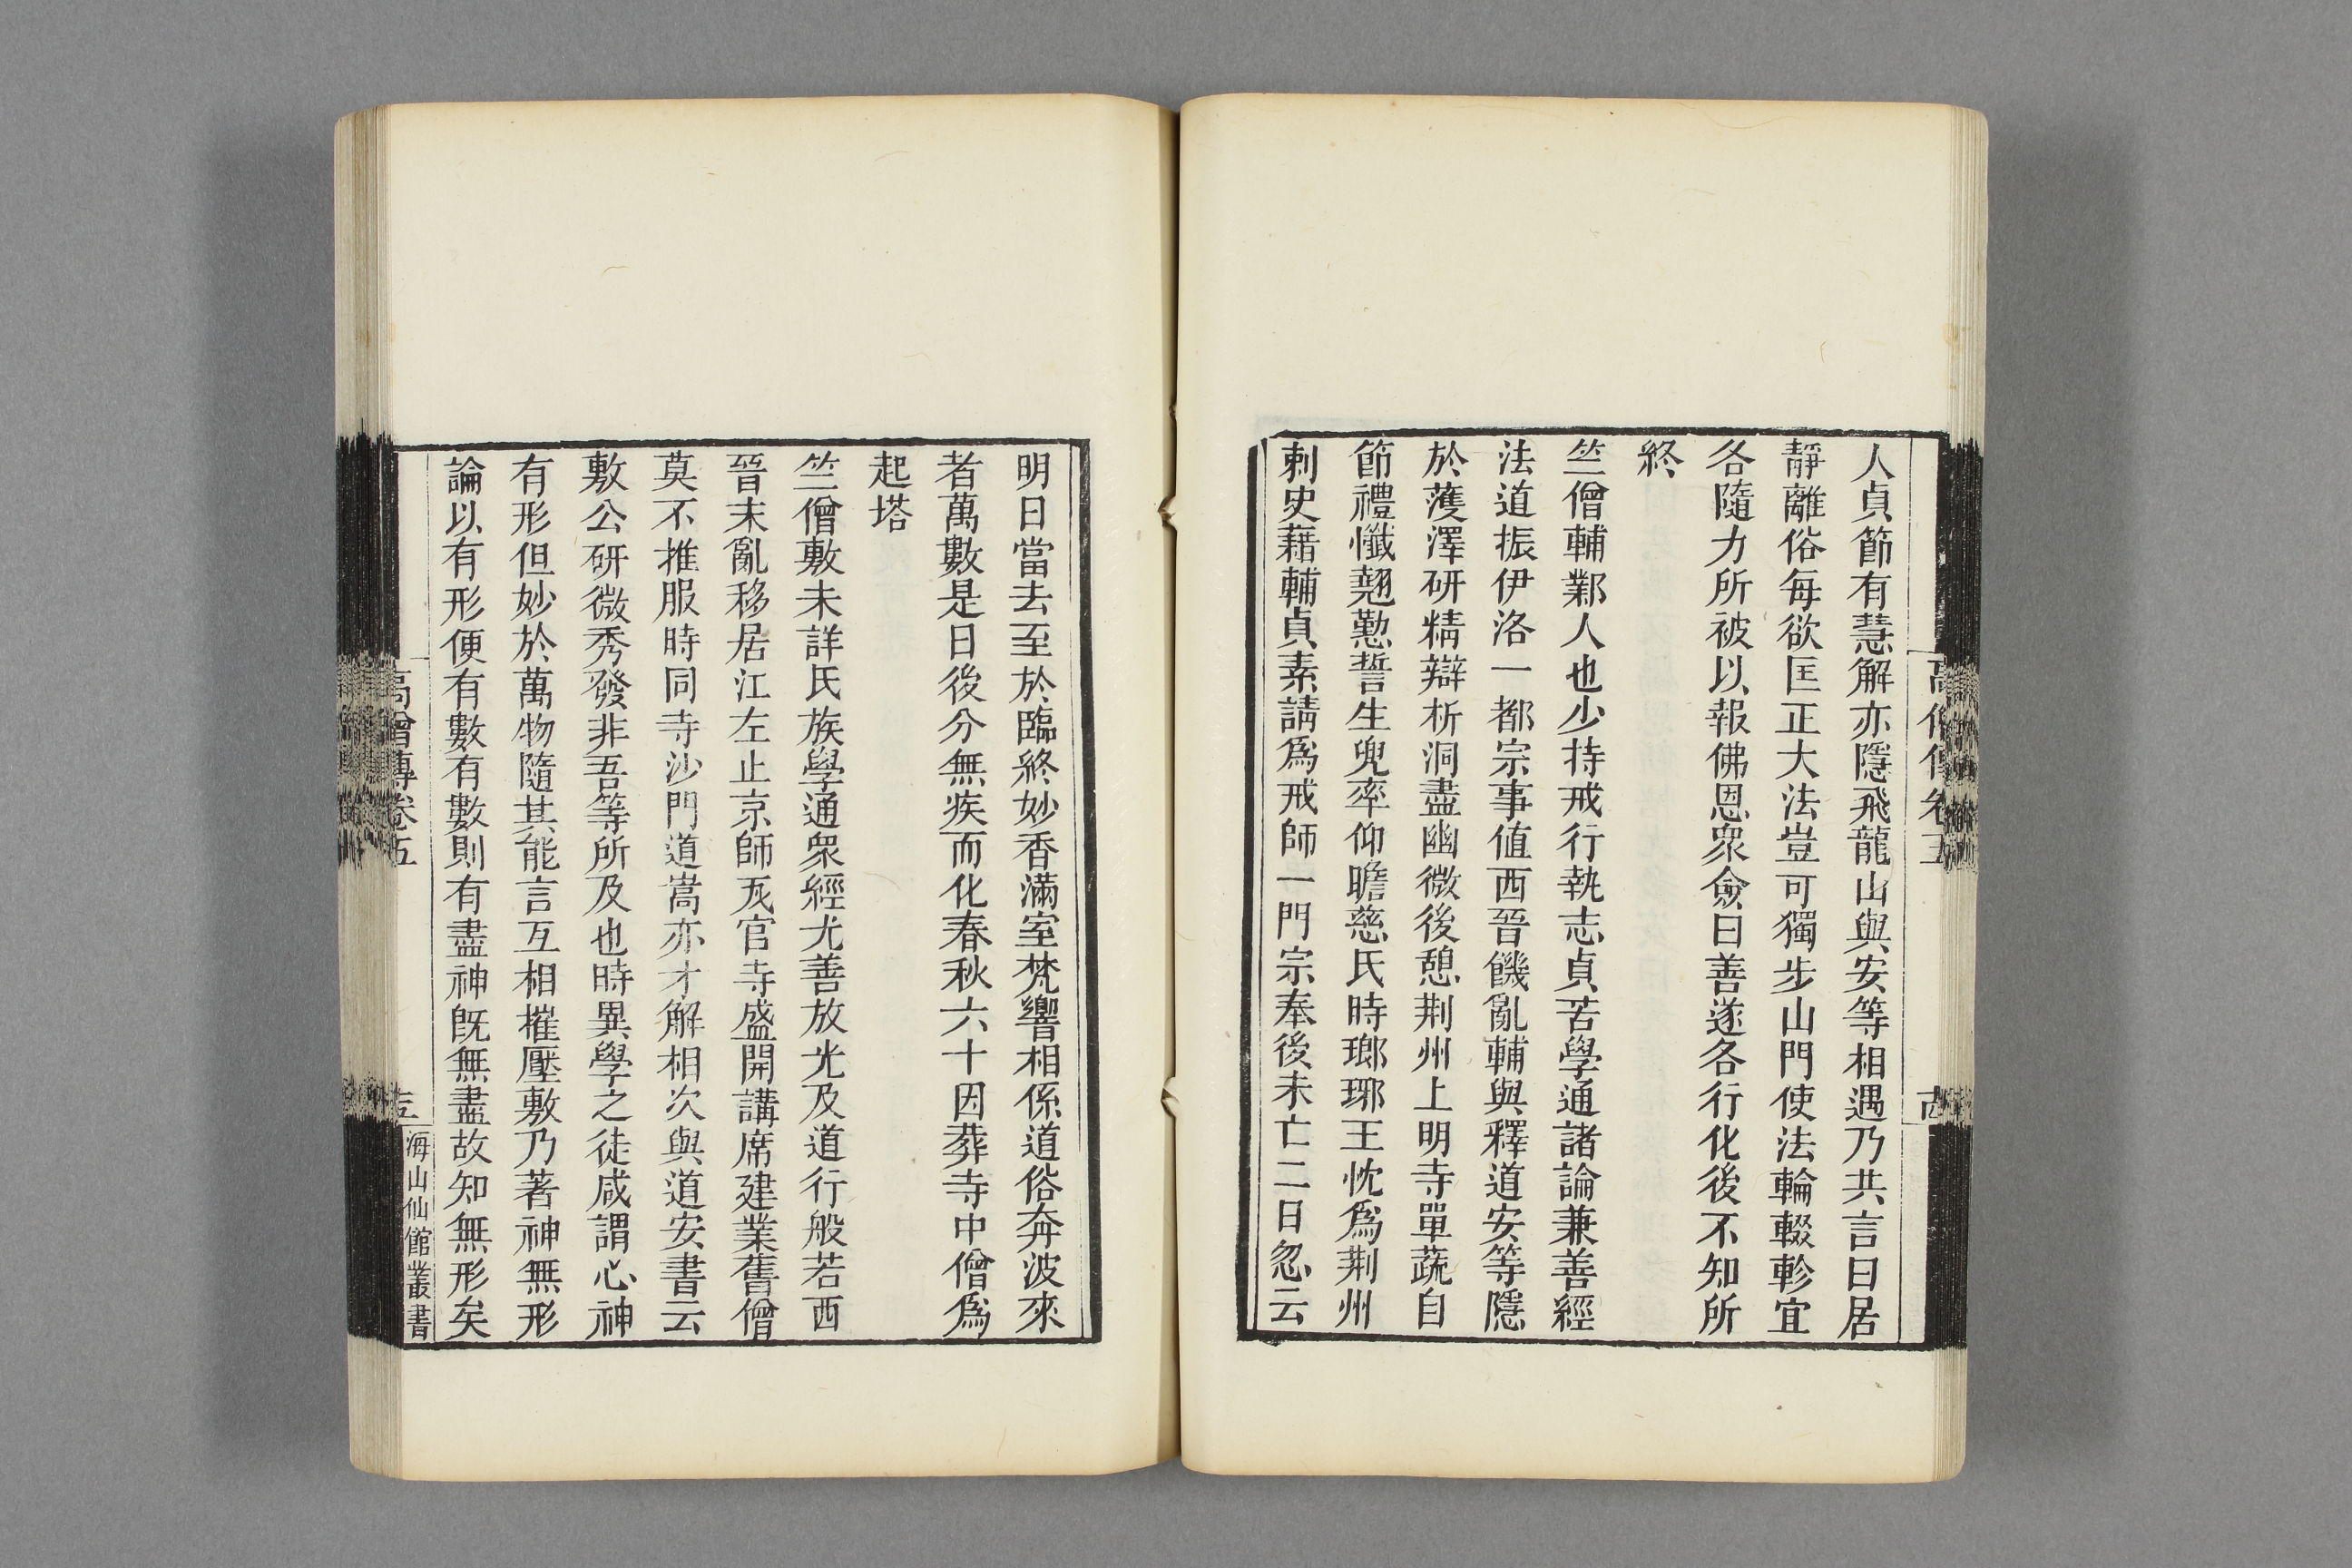 人貞節有慧解亦隱飛龍山與安等相遇乃共言曰居
靜離俗每欲匡正大法豈可獨步山門使法輪輟軫宜
各隨力所被以報佛恩衆僉曰善遂各行化後不知所
終
竺僧輔鄴人也少持戒行執志貞苦學通諸論兼善經
法道振伊洛一都宗事値西晉饑亂輔與釋道安等隱
於濩澤研精辯析洞盡幽微後憩荆州上明寺單蔬自
節禮懺翹懃誓生兜率仰瞻慈氏時瑯琊王忱爲荆州
刺史藉輔貞素請爲戒師一門宗奉後未亡二日忽云
明日當去至於臨終妙香滿室梵響相係道俗奔波來
者萬數是日後分無疾而化春秋六十因葬寺中僧爲
起塔
竺僧敷未詳氏族學通衆經尤善放光及道行般若西
晉末亂移居江左止京師瓦官寺盛開講席建業舊僧
莫不推服時同寺沙門道嵩亦才解相次與道安書云
敷公研微秀發非吾等所及也時異學之徒咸謂心神
有形但妙於萬物隨其能言互相摧壓敷乃著神無形
論以有形便有數有數則有盡神旣無盡故知無形矣
高僧傳卷五
海山仙館叢書